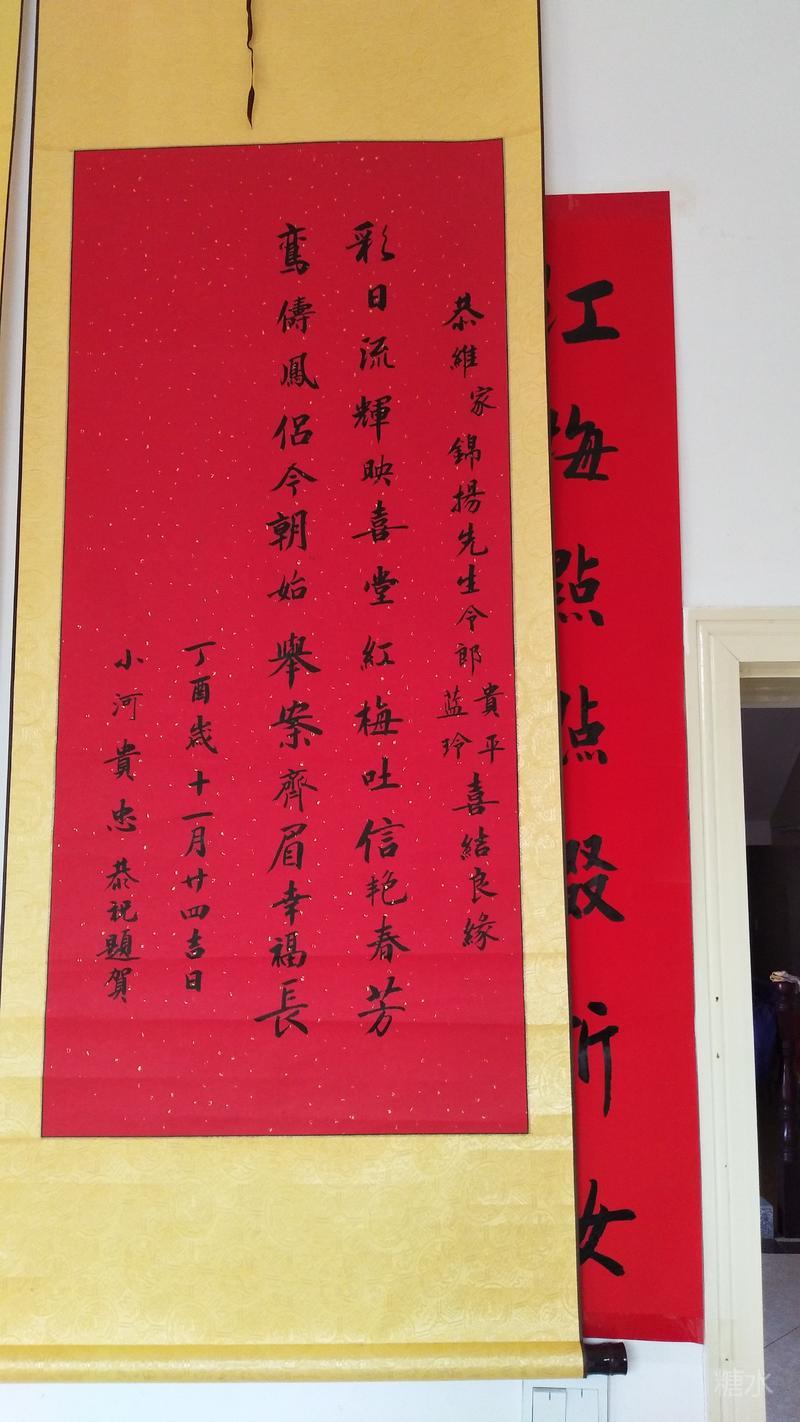 紅梅點點綴
恭維家錦揚先生令郎貴平蓝玲喜結良緣
彩日流輝映喜堂紅梅吐信艳春芳
鸾儔鳳侶今朝始舉案齊眉幸福長
丁酉歲十一月廿四吉日
小河貴忠恭祝題賀
糖水